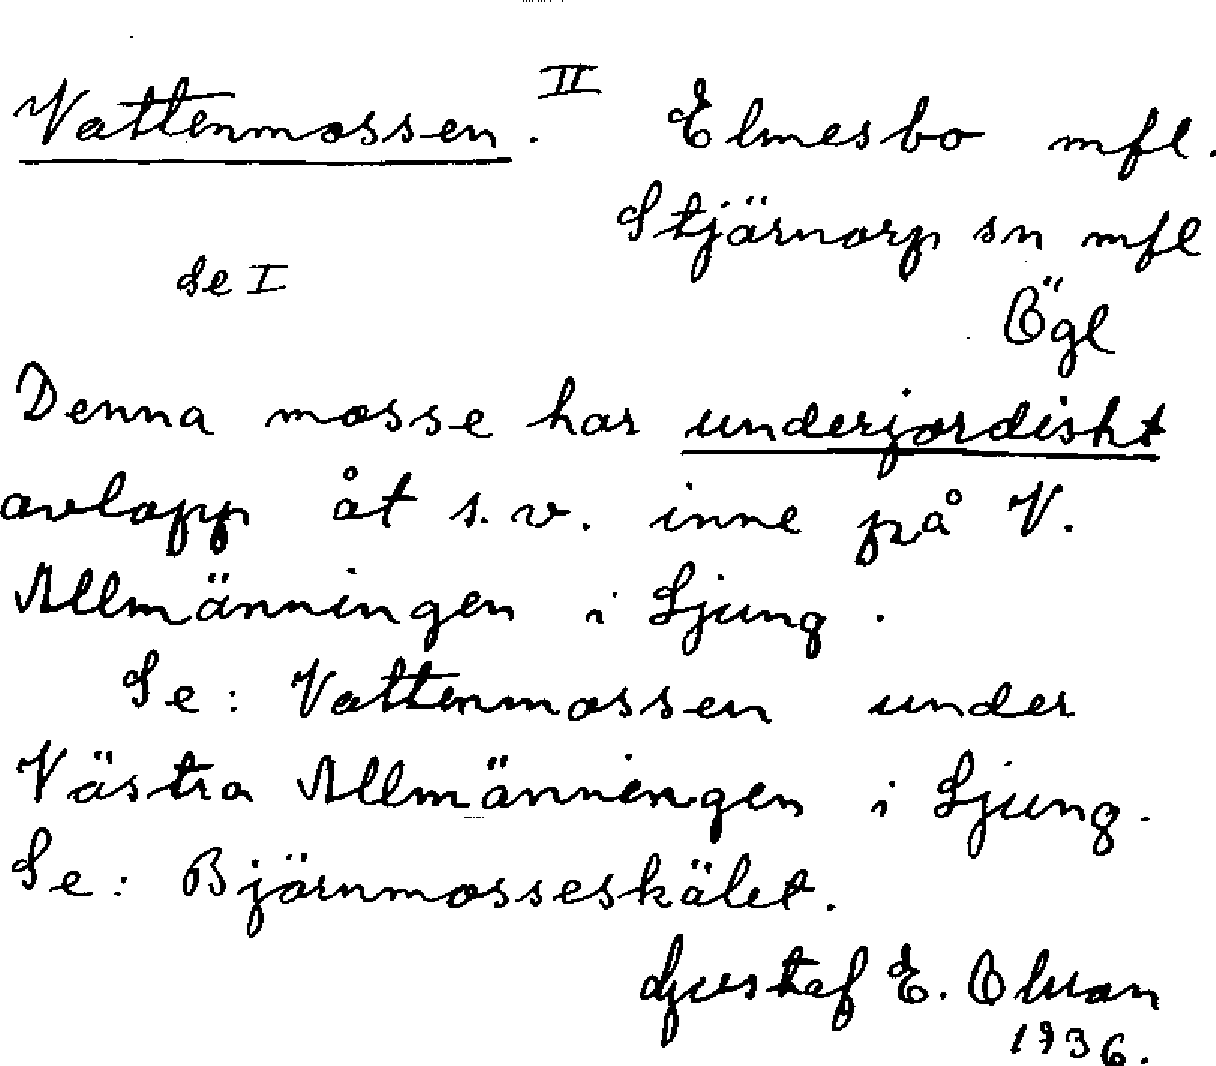 Vattenmossen. II Elmesbo mfl.
Stjärnorp sn mfl
Se I
Ögl
Denna mosse har underjordiskt
avlopp åt s.v. inne på V.
Allmänningen i Ljung.
Se: Vattenmossen under
Västra Allmänningen i Ljung.
Se: Björnmosseskälet.
Gustaf E. Olson
1936.